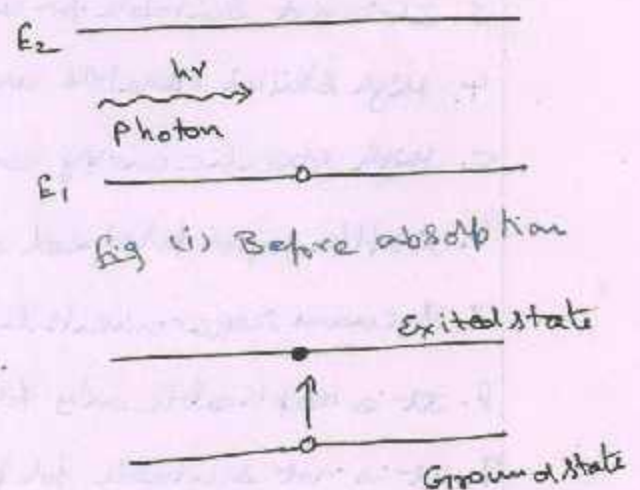 E2
hν
Photon
E1
fig (i) Before absorption
Exited state
Ground state